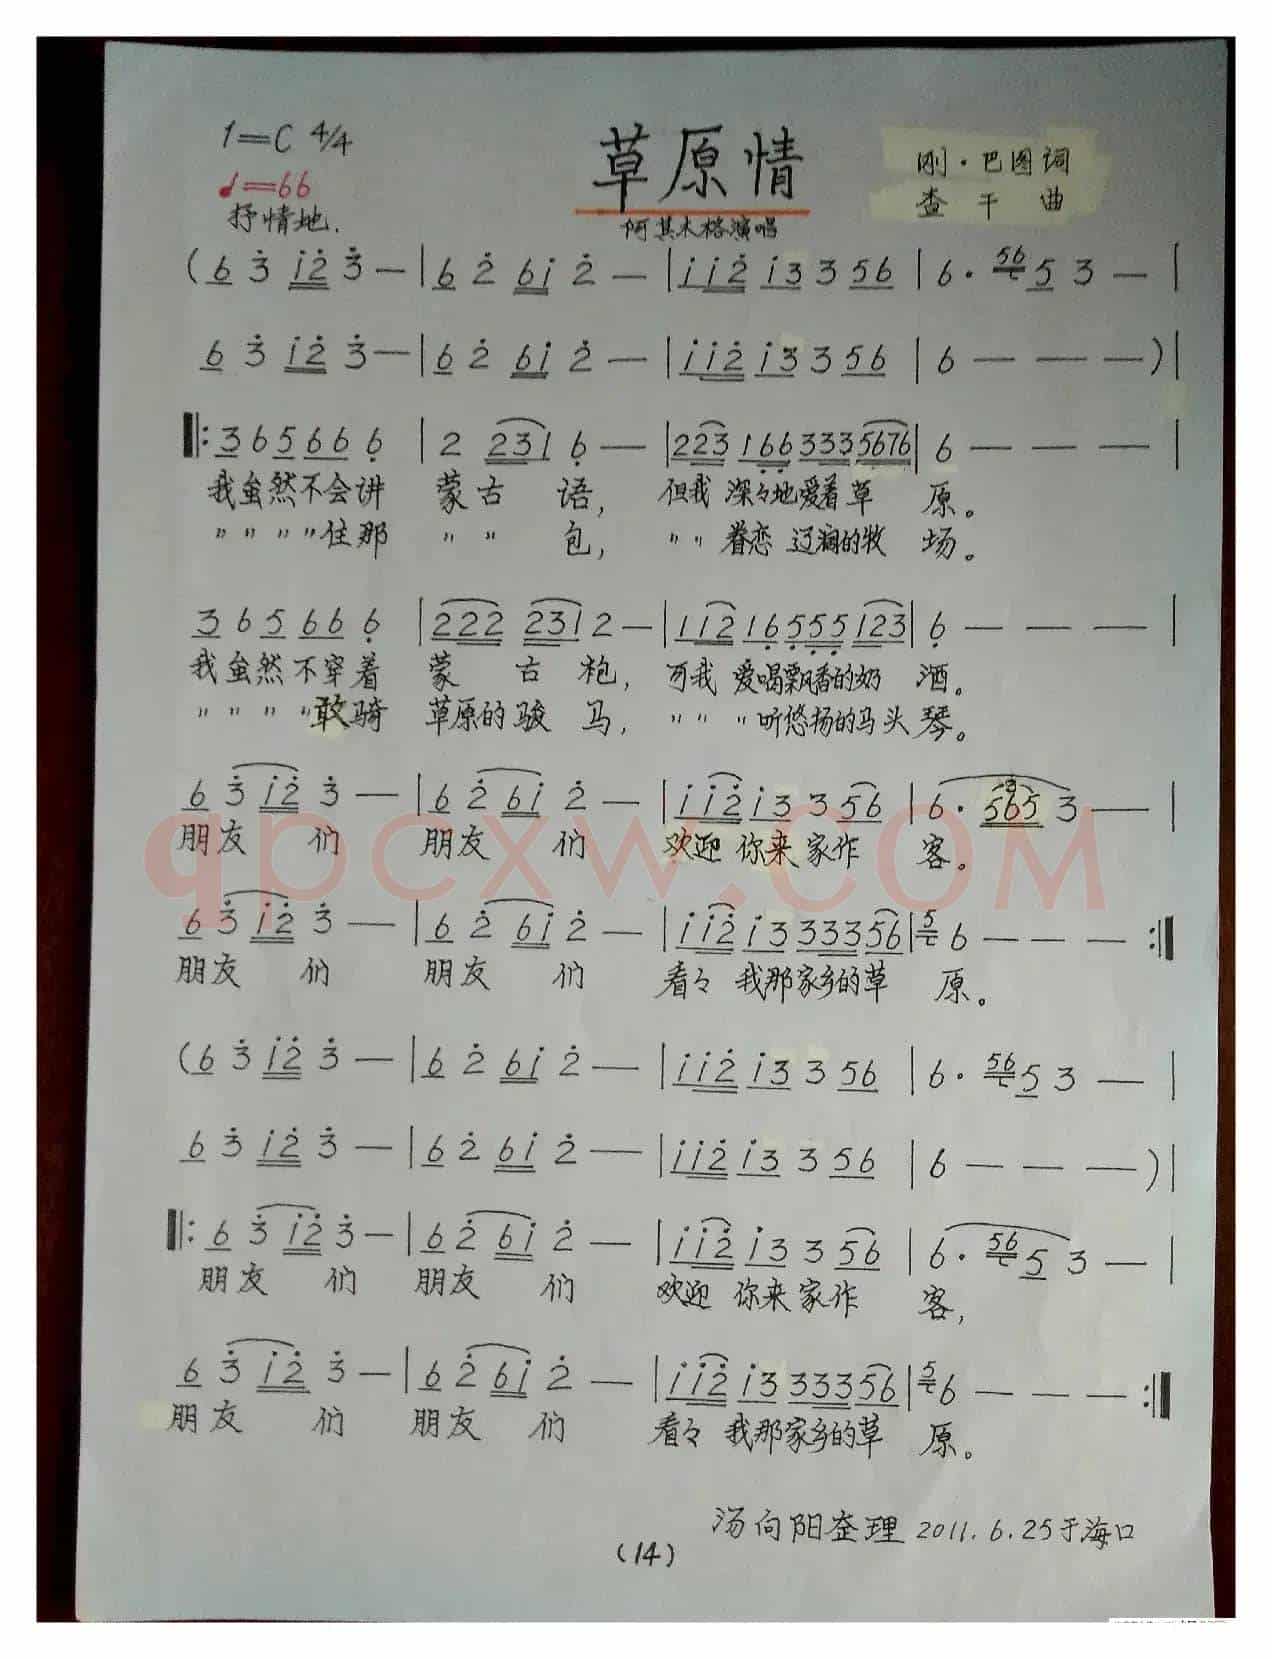 1=C 4/4
草原情
刚·巴图词
♩=66
查干曲
抒情地.
何其木格演唱
(6 3̇ i2̇ 3̇ — | 6 2̇ 6i 2̇ — | ii2̇ i3 3 56 | 6· 56 5 3 — |
6 3̇ i2̇ 3̇ — | 6 2̇ 6i 2̇ — | ii2̇ i3 3 56 | 6 — — — ) |
‖: 3 6 5 6 6 6̣ | 2 231 6̣ — | 223 16̣6̣ 333 5676 | 6 — — — |
我虽然不会讲 蒙古语, 但我 深々地爱着草 原。
〃〃〃〃住那 〃〃 包, 〃〃 眷恋 辽润的牧 场。
3 6 5 6 6 6̣ | 222 231 2 — | 112 16̣ 5̣5̣5̣ 123 | 6̣ — — — |
我虽然不穿着 蒙古袍, 可我 爱喝飘香的奶 酒。
〃〃〃〃敢骑 草原的骏马, 〃〃 〃听悠扬的马头 琴。
6 3̇ i2̇ 3̇ — | 6 2̇ 6i 2̇ — | ii2̇ i3 3 56 | 6· 565 3 — |
朋友们 朋友们 欢迎 你来家作 客。
6 3̇ i2̇ 3̇ — | 6 2̇ 6i 2̇ — | ii2̇ i3 333 56 | 5 6 — — — :‖
朋友们 朋友们 看々 我那家乡的草 原。
(6 3̇ i2̇ 3̇ — | 6 2̇ 6i 2̇ — | ii2̇ i3 3 56 | 6· 56 5 3 — |
6 3̇ i2̇ 3̇ — | 6 2̇ 6i 2̇ — | ii2̇ i3 3 56 | 6 — — — ) |
‖: 6 3̇ i2̇ 3̇ — | 6 2̇ 6i 2̇ — | ii2̇ i3 3 56 | 6· 56 5 3 — |
朋友们 朋友们 欢迎 你来家作 客,
6 3̇ i2̇ 3̇ — | 6 2̇ 6i 2̇ — | ii2̇ i3 333 56 | 5 6 — — — :‖
朋友们 朋友们 看々 我那家乡的草 原。
汤向阳整理 2011.6.25于海口
(14)
qpcxw.com